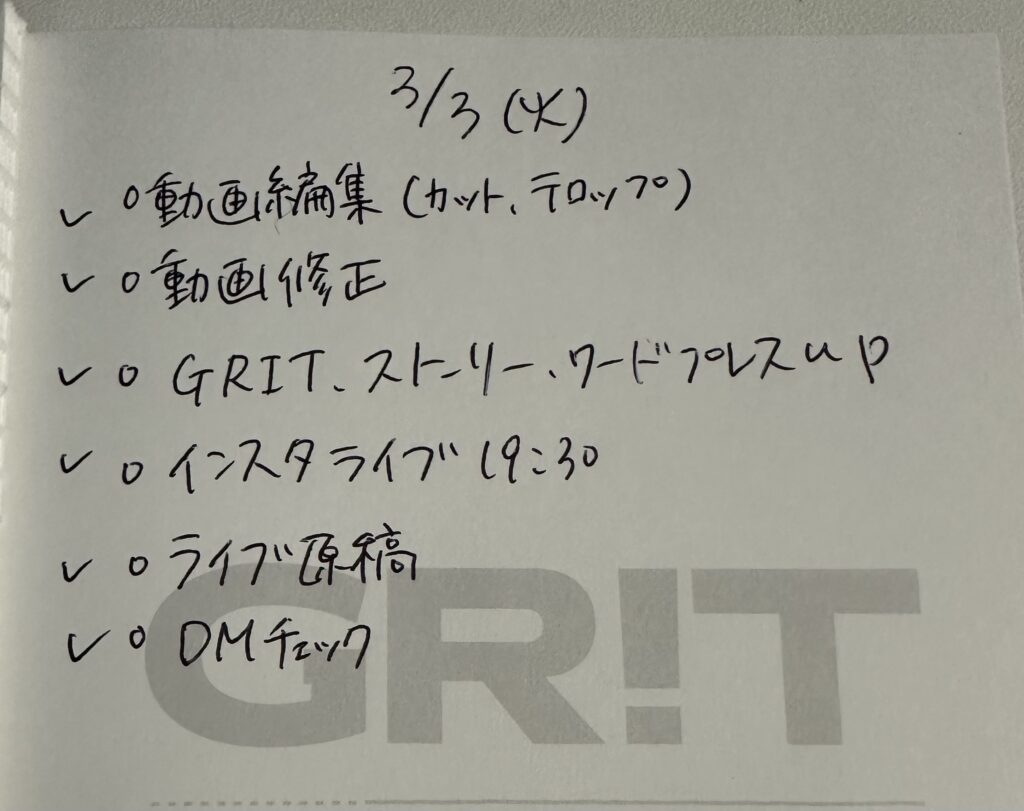 3/3(火)
✓ ○動画編集(カット、テロップ)
✓ ○動画修正
✓ ○ GRIT、ストーリー、ワードプレスup
✓ ○ インスタライブ 19:30
✓ ○ ライブ原稿
✓ ○ DMチェック
GR!T